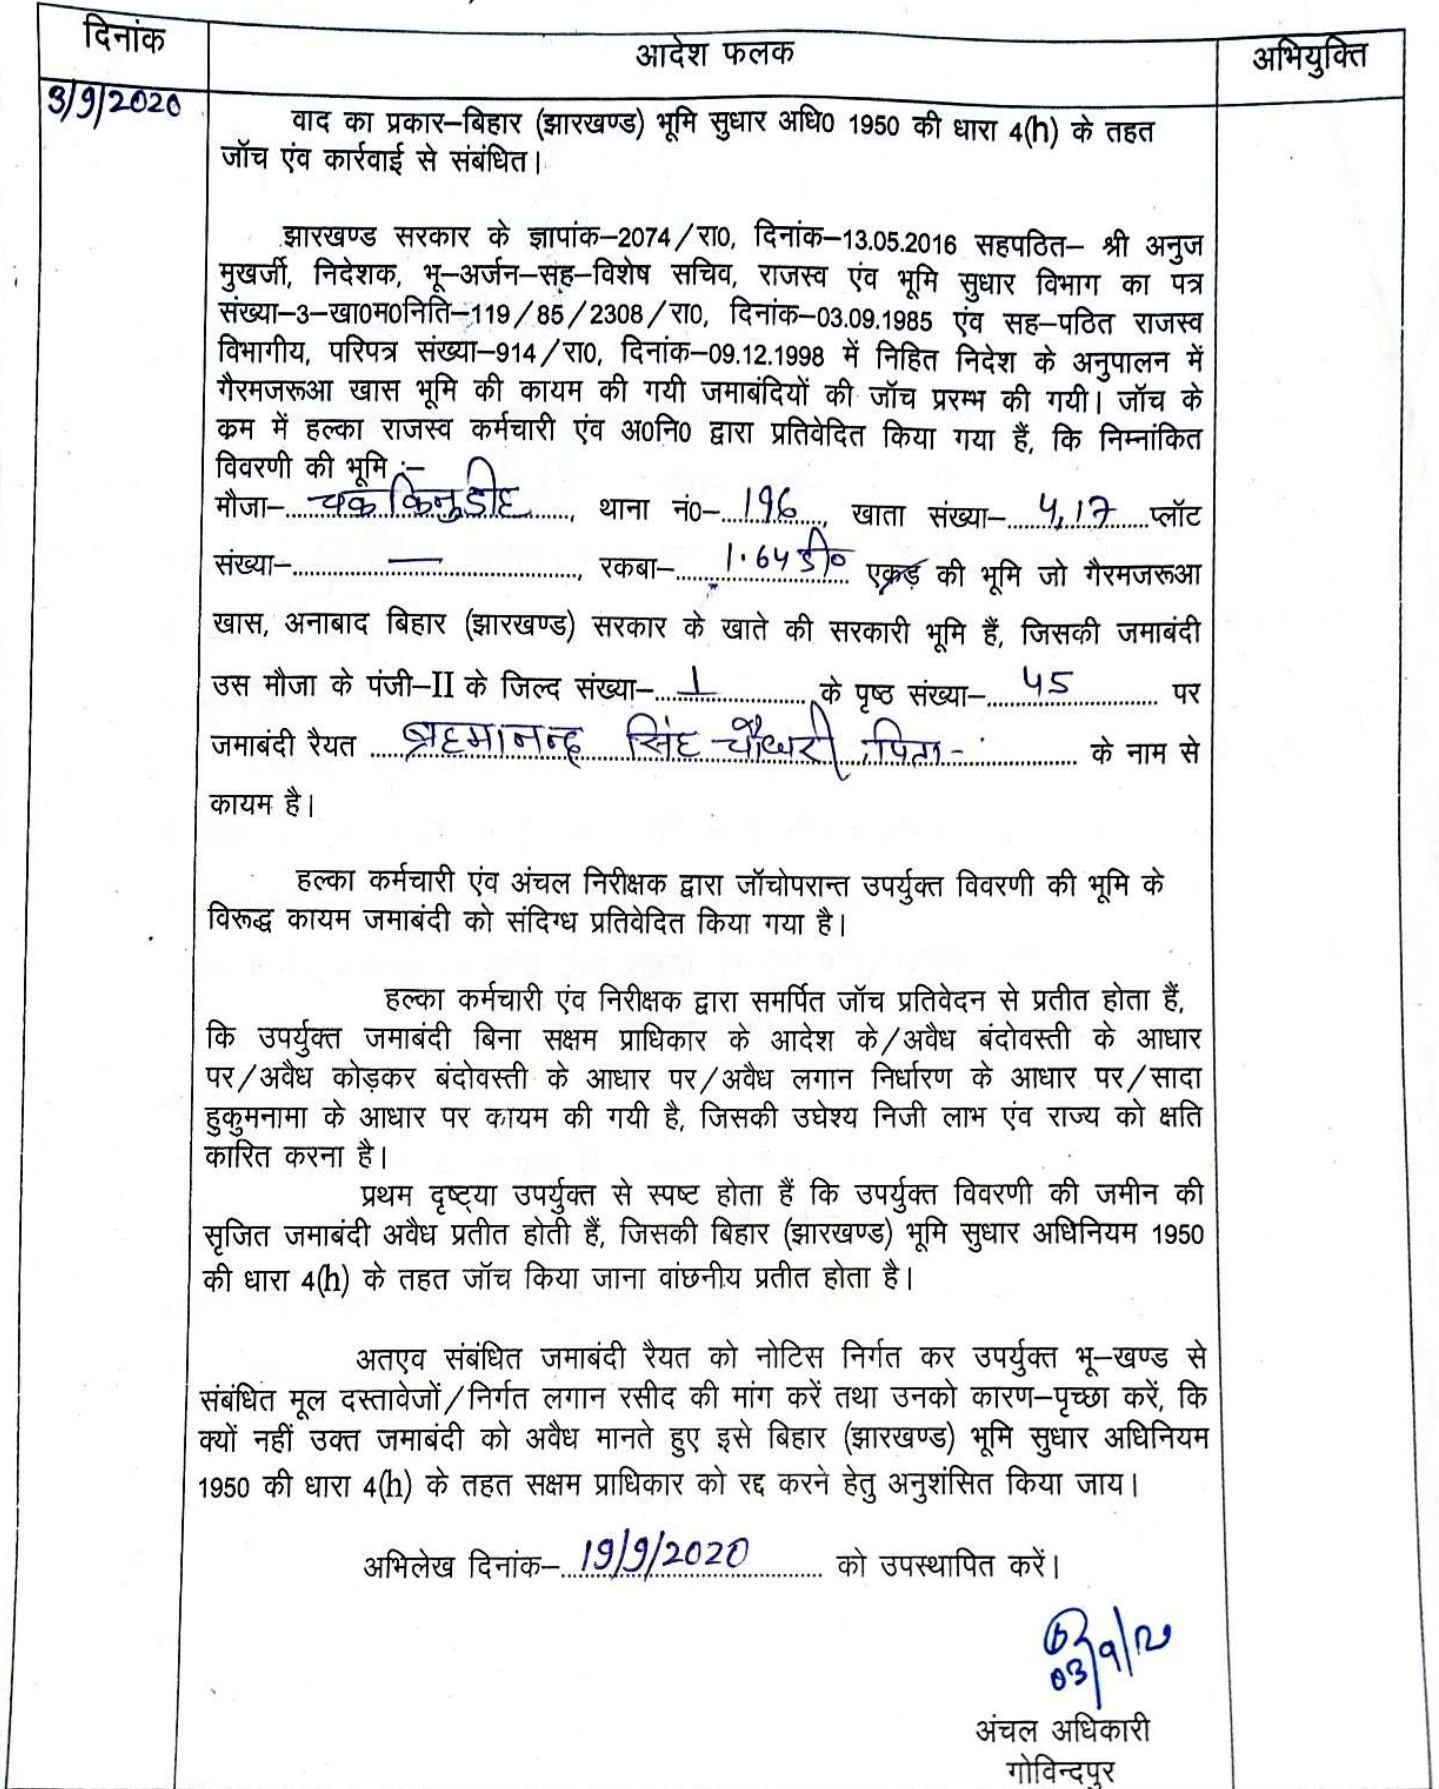 दिनांक
आदेश फलक
अभियुक्ति
3/9/2020
वाद का प्रकार–बिहार (झारखण्ड) भूमि सुधार अधि0 1950 की धारा 4(h) के तहत
जॉच एंव कार्रवाई से संबंधित।
झारखण्ड सरकार के ज्ञापांक–2074/रा0, दिनांक–13.05.2016 सहपठित– श्री अनुज
मुखर्जी, निदेशक, भू–अर्जन–सह–विशेष सचिव, राजस्व एंव भूमि सुधार विभाग का पत्र
संख्या–3–खा0म0निति–119/85/2308/रा0, दिनांक–03.09.1985 एंव सह–पठित राजस्व
विभागीय, परिपत्र संख्या–914/रा0, दिनांक–09.12.1998 में निहित निदेश के अनुपालन में
गैरमजरूआ खास भूमि की कायम की गयी जमाबंदियों की जॉच प्ररम्भ की गयी। जॉच के
क्रम में हल्का राजस्व कर्मचारी एंव अ0नि0 द्वारा प्रतिवेदित किया गया हैं, कि निम्नांकित
विवरणी की भूमि :–
मौजा–चक किनुडीह, थाना नं0–196, खाता संख्या–4,17 प्लॉट
संख्या– —, रकबा–1.64 डी0 एकड़ की भूमि जो गैरमजरूआ
खास, अनाबाद बिहार (झारखण्ड) सरकार के खाते की सरकारी भूमि हैं, जिसकी जमाबंदी
उस मौजा के पंजी–II के जिल्द संख्या–1 के पृष्ठ संख्या–45 पर
जमाबंदी रैयत ब्रह्मानन्द सिंह चौधरी, पिता- के नाम से
कायम है।
हल्का कर्मचारी एंव अंचल निरीक्षक द्वारा जॉचोपरान्त उपर्युक्त विवरणी की भूमि के
विरूद्ध कायम जमाबंदी को संदिग्ध प्रतिवेदित किया गया है।
हल्का कर्मचारी एंव निरीक्षक द्वारा समर्पित जॉच प्रतिवेदन से प्रतीत होता हैं,
कि उपर्युक्त जमाबंदी बिना सक्षम प्राधिकार के आदेश के/अवैध बंदोवस्ती के आधार
पर/अवैध कोड़कर बंदोवस्ती के आधार पर/अवैध लगान निर्धारण के आधार पर/सादा
हुकुमनामा के आधार पर कायम की गयी है, जिसकी उघेश्य निजी लाभ एंव राज्य को क्षति
कारित करना है।
प्रथम दृष्ट्या उपर्युक्त से स्पष्ट होता हैं कि उपर्युक्त विवरणी की जमीन की
सृजित जमाबंदी अवैध प्रतीत होती हैं, जिसकी बिहार (झारखण्ड) भूमि सुधार अधिनियम 1950
की धारा 4(h) के तहत जॉच किया जाना वांछनीय प्रतीत होता है।
अतएव संबंधित जमाबंदी रैयत को नोटिस निर्गत कर उपर्युक्त भू–खण्ड से
संबंधित मूल दस्तावेजों/निर्गत लगान रसीद की मांग करें तथा उनको कारण–पृच्छा करें, कि
क्यों नहीं उक्त जमाबंदी को अवैध मानते हुए इसे बिहार (झारखण्ड) भूमि सुधार अधिनियम
1950 की धारा 4(h) के तहत सक्षम प्राधिकार को रद्द करने हेतु अनुशंसित किया जाय।
अभिलेख दिनांक–19/9/2020 को उपस्थापित करें।
03/9/20
अंचल अधिकारी
गोविन्दपुर